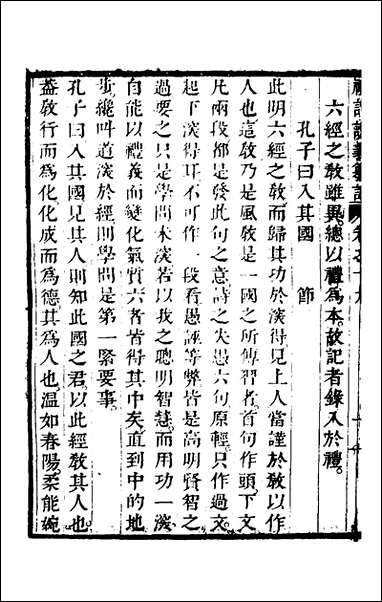 禮記說義纂訂 卷之十九
六經之敎雖異總以禮為本故記者錄入於禮。
孔子曰入其國 節
此明六經之敎而歸其功於深得見上人當謹於敎以作
人也這敎乃是風敎是一國之所傳習者首句作頭下文
凡兩段都是發此句之意詩之失愚六句原輕只作過文
起下深得耳不可作一段看愚誣等弊皆是高明賢智之
過要之只是學問未深若以我之聰明智慧而用功一深
自能以禮義而變化氣質六者皆得其中矣直到中的地
步纔叫道深於經則學問是第一緊要事。
孔子曰入其國見其人則知此國之君以此經敎其人也
蓋敎行而為化化成而為德其為人也溫如春陽柔能婉